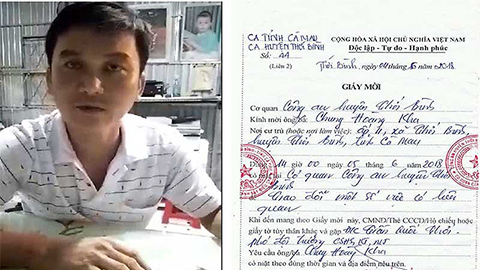 CA TỈNH CÀ MAU
CA HUYỆN THỚI BÌNH
Số: 44
(Liên 2)
CỘNG HÒA XÃ HỘI CHỦ NGHĨA VIỆT NAM
Độc lập - Tự do - Hạnh phúc
Thới Bình, ngày 04 tháng 6 năm 2018
GIẤY MỜI
Cơ quan Công an huyện Thới Bình
Kính mời ông Chung Hoàng Kha
Nơi cư trú (hoặc nơi làm việc): ấp xã Thới Bình,
huyện Thới Bình, tỉnh Cà Mau
Đúng 14 giờ 00 ngày 05 6 2018
có mặt tại Cơ quan Công an huyện Thới
Bình
trao đổi một số việc có liên
quan
Khi đến mang theo Giấy mời này, CMND/Thẻ CCCD/Hộ chiếu hoặc
giấy tờ tùy thân khác và gặp Đ/C Trần Quốc Thới
phó đội trưởng CSHS, KT, MT
Yêu cầu ông Chung Hoàng Kha
có mặt theo đúng thời gian và địa điểm nêu trên.